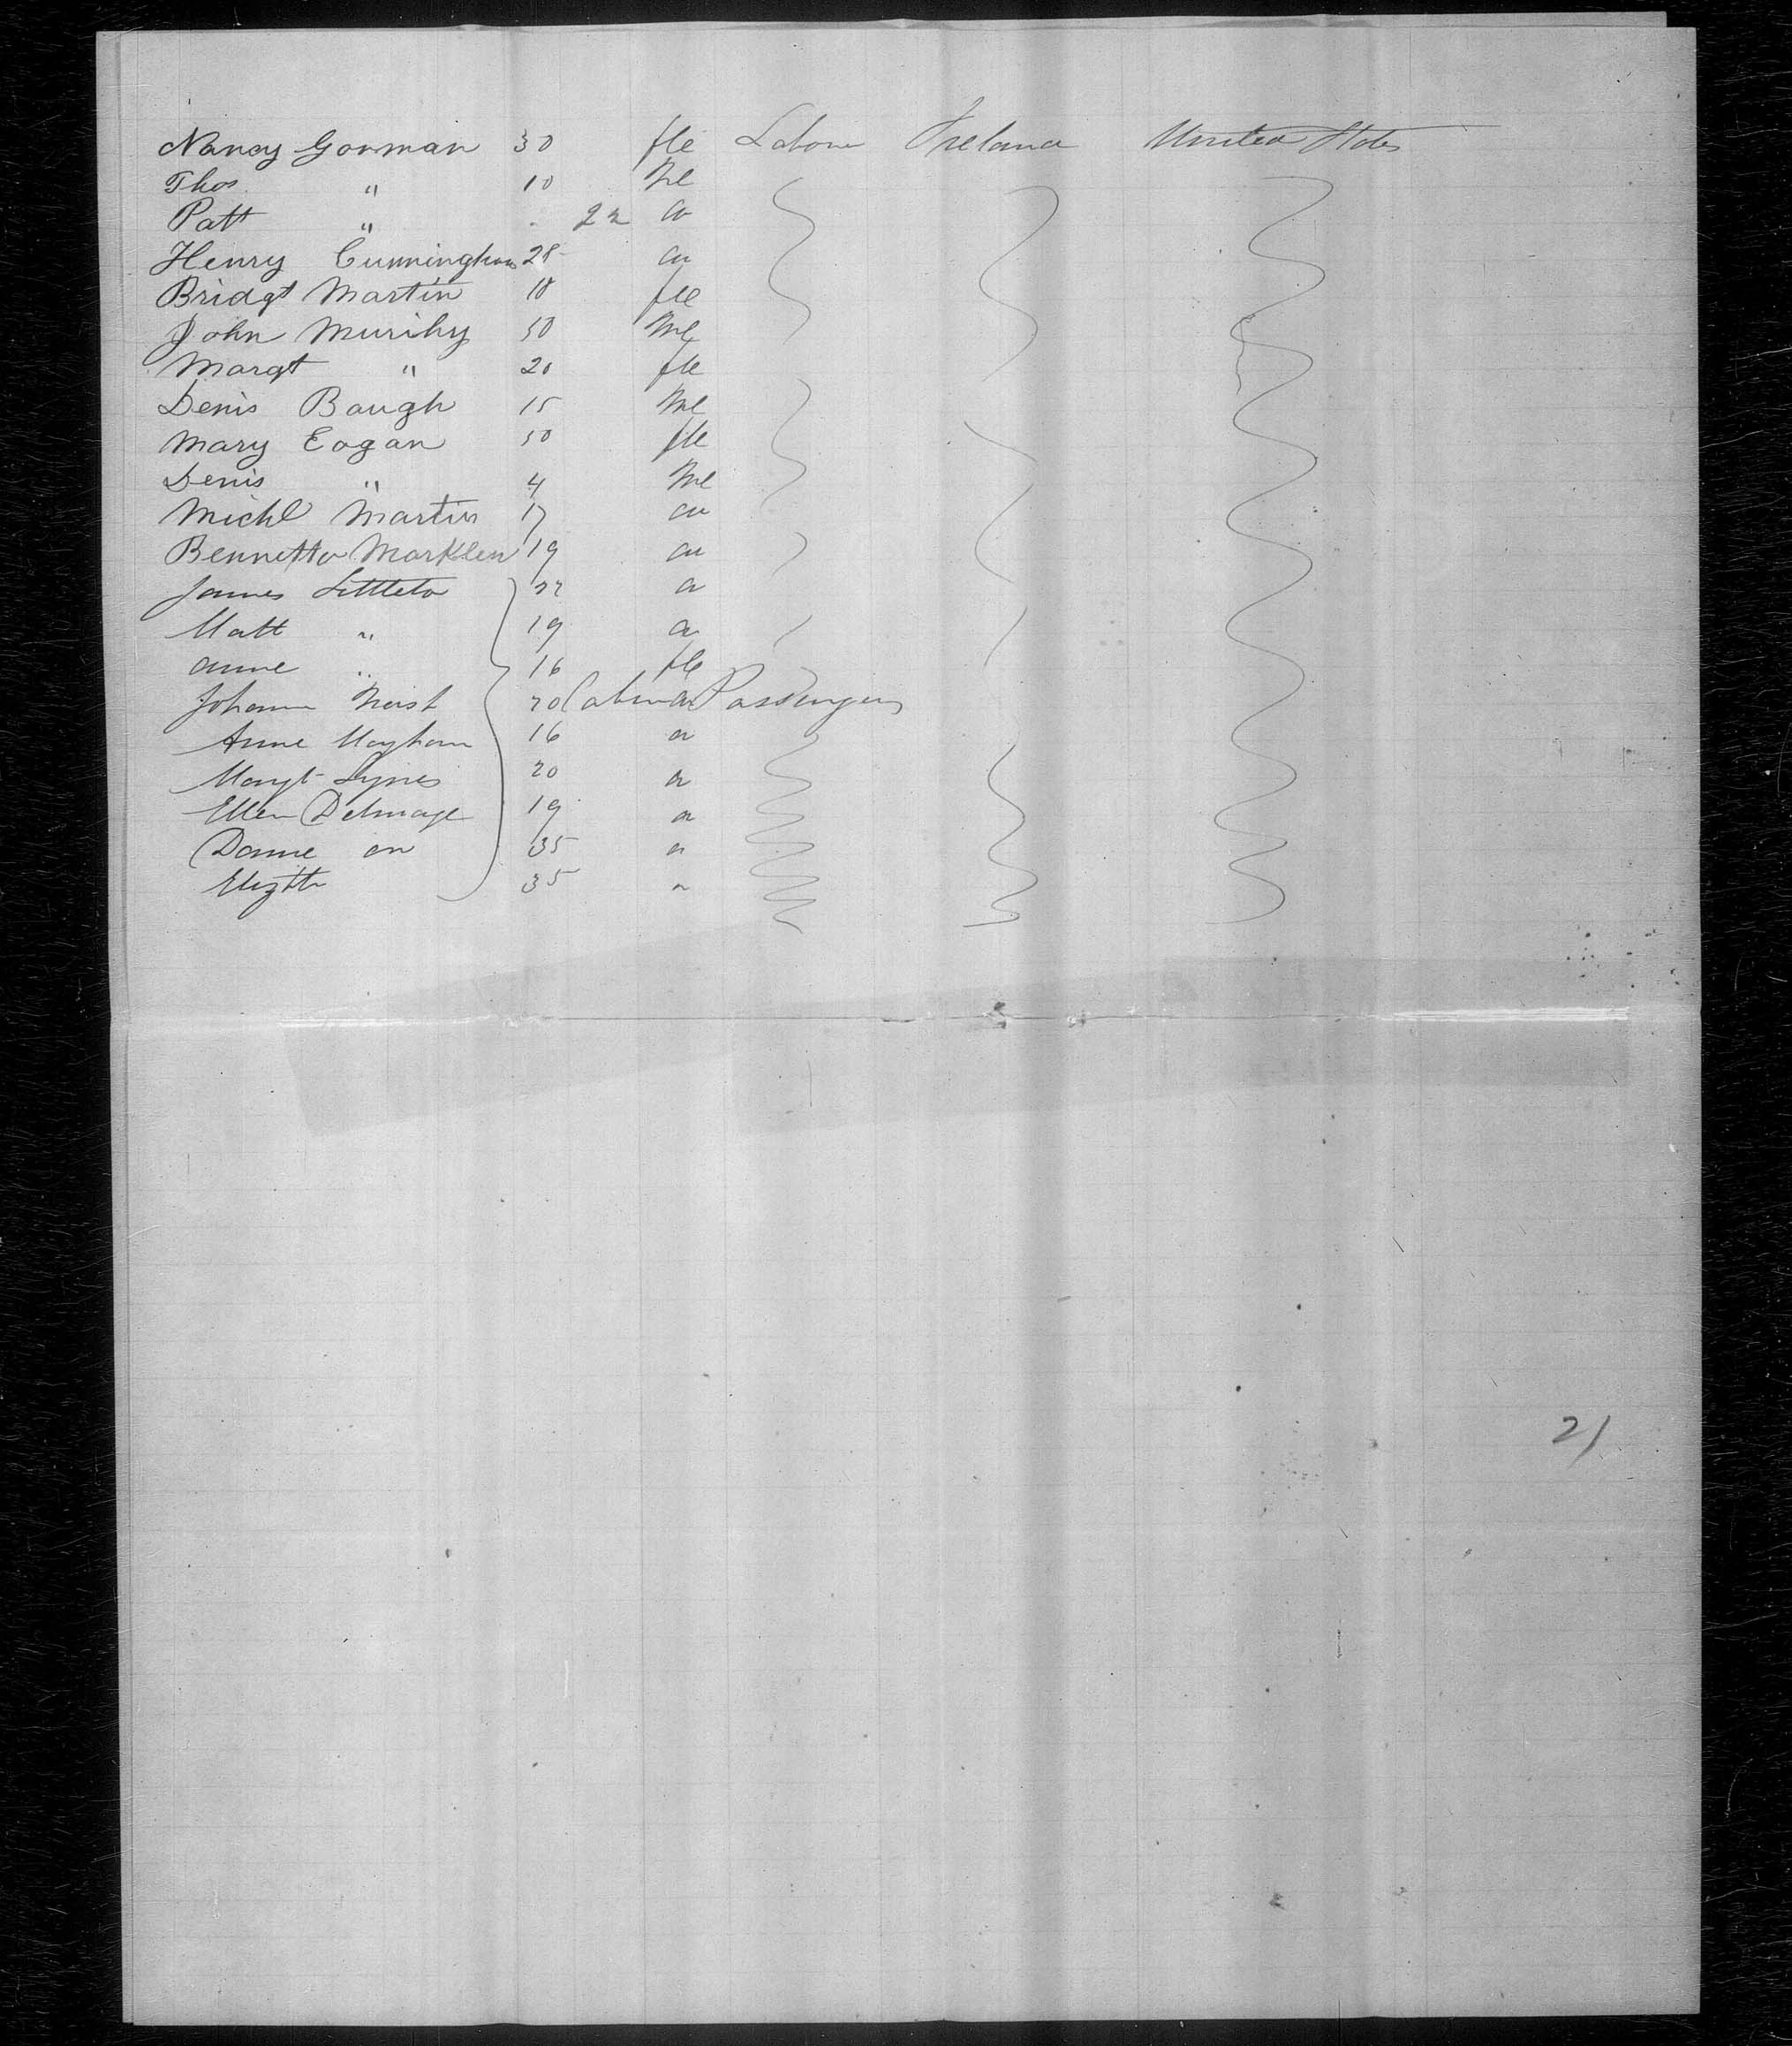 Nancy Gorman 30 fle Labour Ireland United States
Thos " 10 Ml
Patt " 22 
Henry Cunningham 28
Bridgt Martin 18 fle
John Murihy 50 Ml
Margt " 20 fle
Denis Baugh 15 Ml
Mary Eogan 50 fle
Denis " 4 Ml
Michl Martin 17
Bennetto Marklen 19
James Littleto 22
Matt " 19
Anne " 16 fle
Johanna 20 Cabin Passengers
Anne Mayham 16
Margt Lynes 20
Ellen Delmage 19
35
Elizth 35
21